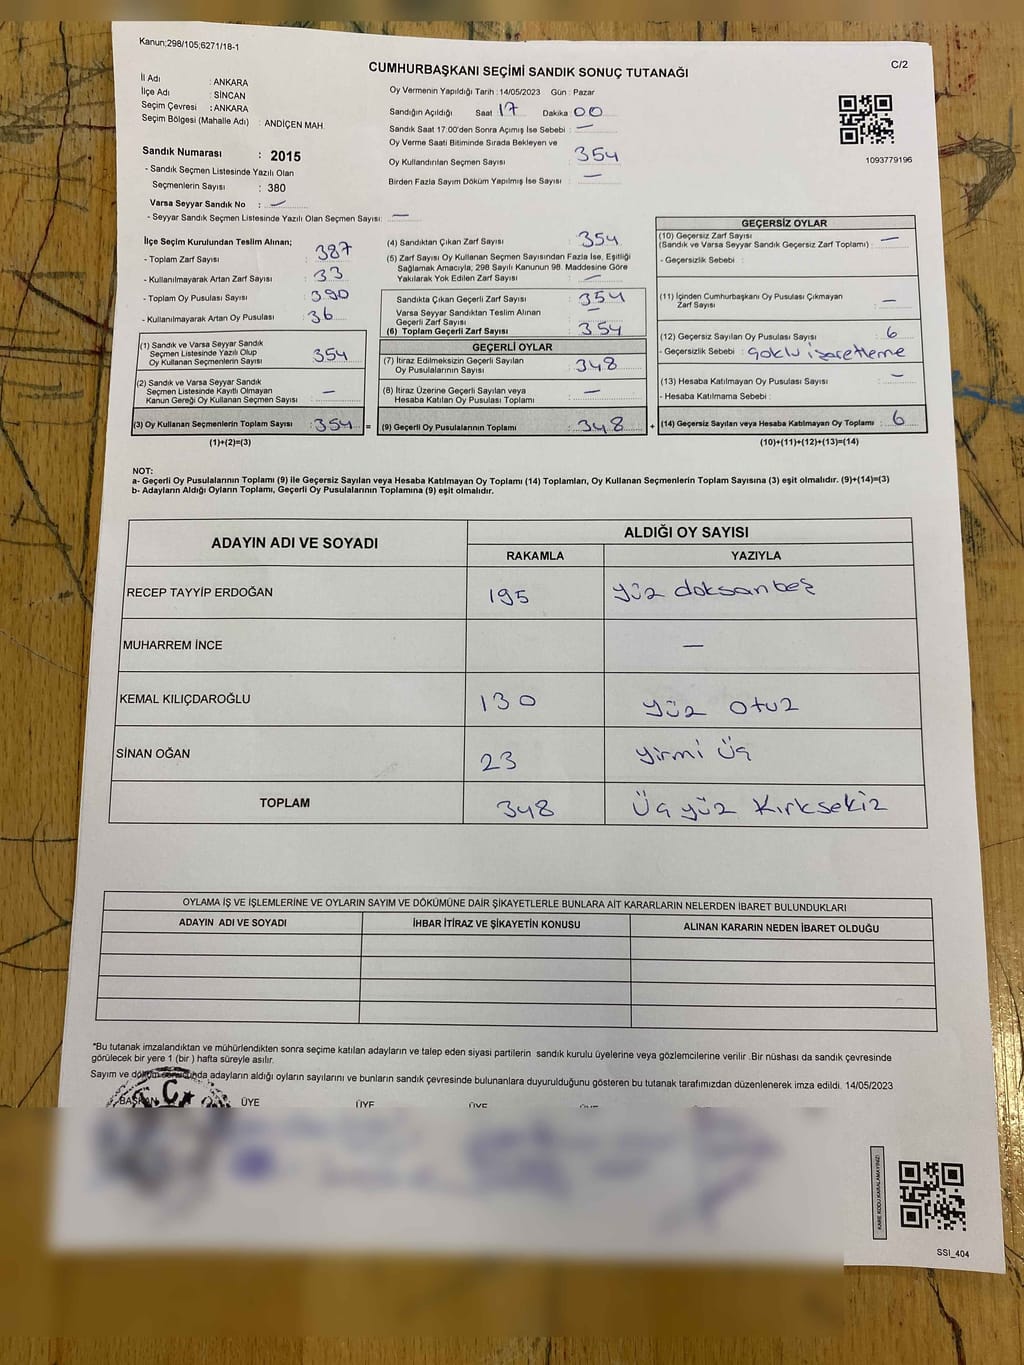 Kanun;298/105;6271/18-1
C/2
CUMHURBAŞKANI SEÇİMİ SANDIK SONUÇ TUTANAĞI
İl Adı : ANKARA
İlçe Adı : SİNCAN
Seçim Çevresi : ANKARA
Seçim Bölgesi (Mahalle Adı) : ANDİÇEN MAH.
Sandık Numarası : 2015
- Sandık Seçmen Listesinde Yazılı Olan
Seçmenlerin Sayısı : 380
Varsa Seyyar Sandık No : —
- Seyyar Sandık Seçmen Listesinde Yazılı Olan Seçmen Sayısı: —
Oy Vermenin Yapıldığı Tarih : 14/05/2023 Gün : Pazar
Sandığın Açıldığı Saat 17 Dakika : 00
Sandık Saat 17:00'den Sonra Açımış İse Sebebi : —
Oy Verme Saati Bitiminde Sırada Bekleyen ve
Oy Kullandırılan Seçmen Sayısı : 354
Birden Fazla Sayım Döküm Yapılmış İse Sayısı : —
1093779196
İlçe Seçim Kurulundan Teslim Alınan;
- Toplam Zarf Sayısı : 387
- Kullanılmayarak Artan Zarf Sayısı : 33
- Toplam Oy Pusulası Sayısı : 390
- Kullanılmayarak Artan Oy Pusulası : 36
(1) Sandık ve Varsa Seyyar Sandık
Seçmen Listesinde Yazılı Olup
Oy Kullanan Seçmenlerin Sayısı : 354
(2) Sandık ve Varsa Seyyar Sandık
Seçmen Listesinde Kayıtlı Olmayan
Kanun Gereği Oy Kullanan Seçmen Sayısı : —
(3) Oy Kullanan Seçmenlerin Toplam Sayısı : 354 =
(1)+(2)=(3)
(4) Sandıktan Çıkan Zarf Sayısı : 354
(5) Zarf Sayısı Oy Kullanan Seçmen Sayısından Fazla İse, Eşitliği
Sağlamak Amacıyla; 298 Sayılı Kanunun 98. Maddesine Göre
Yakılarak Yok Edilen Zarf Sayısı : —
Sandıkta Çıkan Geçerli Zarf Sayısı : 354
Varsa Seyyar Sandıktan Teslim Alınan
Geçerli Zarf Sayısı : —
(6) Toplam Geçerli Zarf Sayısı : 354
GEÇERLİ OYLAR
(7) İtiraz Edilmeksizin Geçerli Sayılan
Oy Pusulalarının Sayısı : 348
(8) İtiraz Üzerine Geçerli Sayılan veya
Hesaba Katılan Oy Pusulası Toplamı : —
(9) Geçerli Oy Pusulalarının Toplamı : 348 +
GEÇERSİZ OYLAR
(10) Geçersiz Zarf Sayısı
(Sandık ve Varsa Seyyar Sandık Geçersiz Zarf Toplamı) : —
- Geçersizlik Sebebi :
(11) İçinden Cumhurbaşkanı Oy Pusulası Çıkmayan
Zarf Sayısı : —
(12) Geçersiz Sayılan Oy Pusulası Sayısı : 6
- Geçersizlik Sebebi : çoklu işaretleme
(13) Hesaba Katılmayan Oy Pusulası Sayısı : —
- Hesaba Katılmama Sebebi :
(14) Geçersiz Sayılan veya Hesaba Katılmayan Oy Toplamı : 6
(10)+(11)+(12)+(13)=(14)
NOT:
a- Geçerli Oy Pusulalarının Toplamı (9) ile Geçersiz Sayılan veya Hesaba Katılmayan Oy Toplamı (14) Toplamları, Oy Kullanan Seçmenlerin Toplam Sayısına (3) eşit olmalıdır. (9)+(14)=(3)
b- Adayların Aldığı Oyların Toplamı, Geçerli Oy Pusulalarının Toplamına (9) eşit olmalıdır.
ADAYIN ADI VE SOYADI
ALDIĞI OY SAYISI
RAKAMLA YAZIYLA
RECEP TAYYİP ERDOĞAN 195 yüz doksanbeş
MUHARREM İNCE —
KEMAL KILIÇDAROĞLU 130 yüz otuz
SİNAN OĞAN 23 yirmi üç
TOPLAM 348 Üç yüz Kırksekiz
OYLAMA İŞ VE İŞLEMLERİNE VE OYLARIN SAYIM VE DÖKÜMÜNE DAİR ŞİKAYETLERLE BUNLARA AİT KARARLARIN NELERDEN İBARET BULUNDUKLARI
ADAYIN ADI VE SOYADI İHBAR İTİRAZ VE ŞİKAYETİN KONUSU ALINAN KARARIN NEDEN İBARET OLDUĞU
"Bu tutanak imzalandıktan ve mühürlendikten sonra seçime katılan adayların ve talep eden siyasi partilerin sandık kurulu üyelerine veya gözlemcilerine verilir .Bir nüshası da sandık çevresinde
görülecek bir yere 1 (bir ) hafta süreyle asılır.
Sayım ve döküm sonucunda adayların aldığı oyların sayılarını ve bunların sandık çevresinde bulunanlara duyurulduğunu gösteren bu tutanak tarafımızdan düzenlenerek imza edildi. 14/05/2023
BAŞKAN ÜYE ÜYE ÜYE
KARE KODU KARALAMAYINIZ!
SSI_404